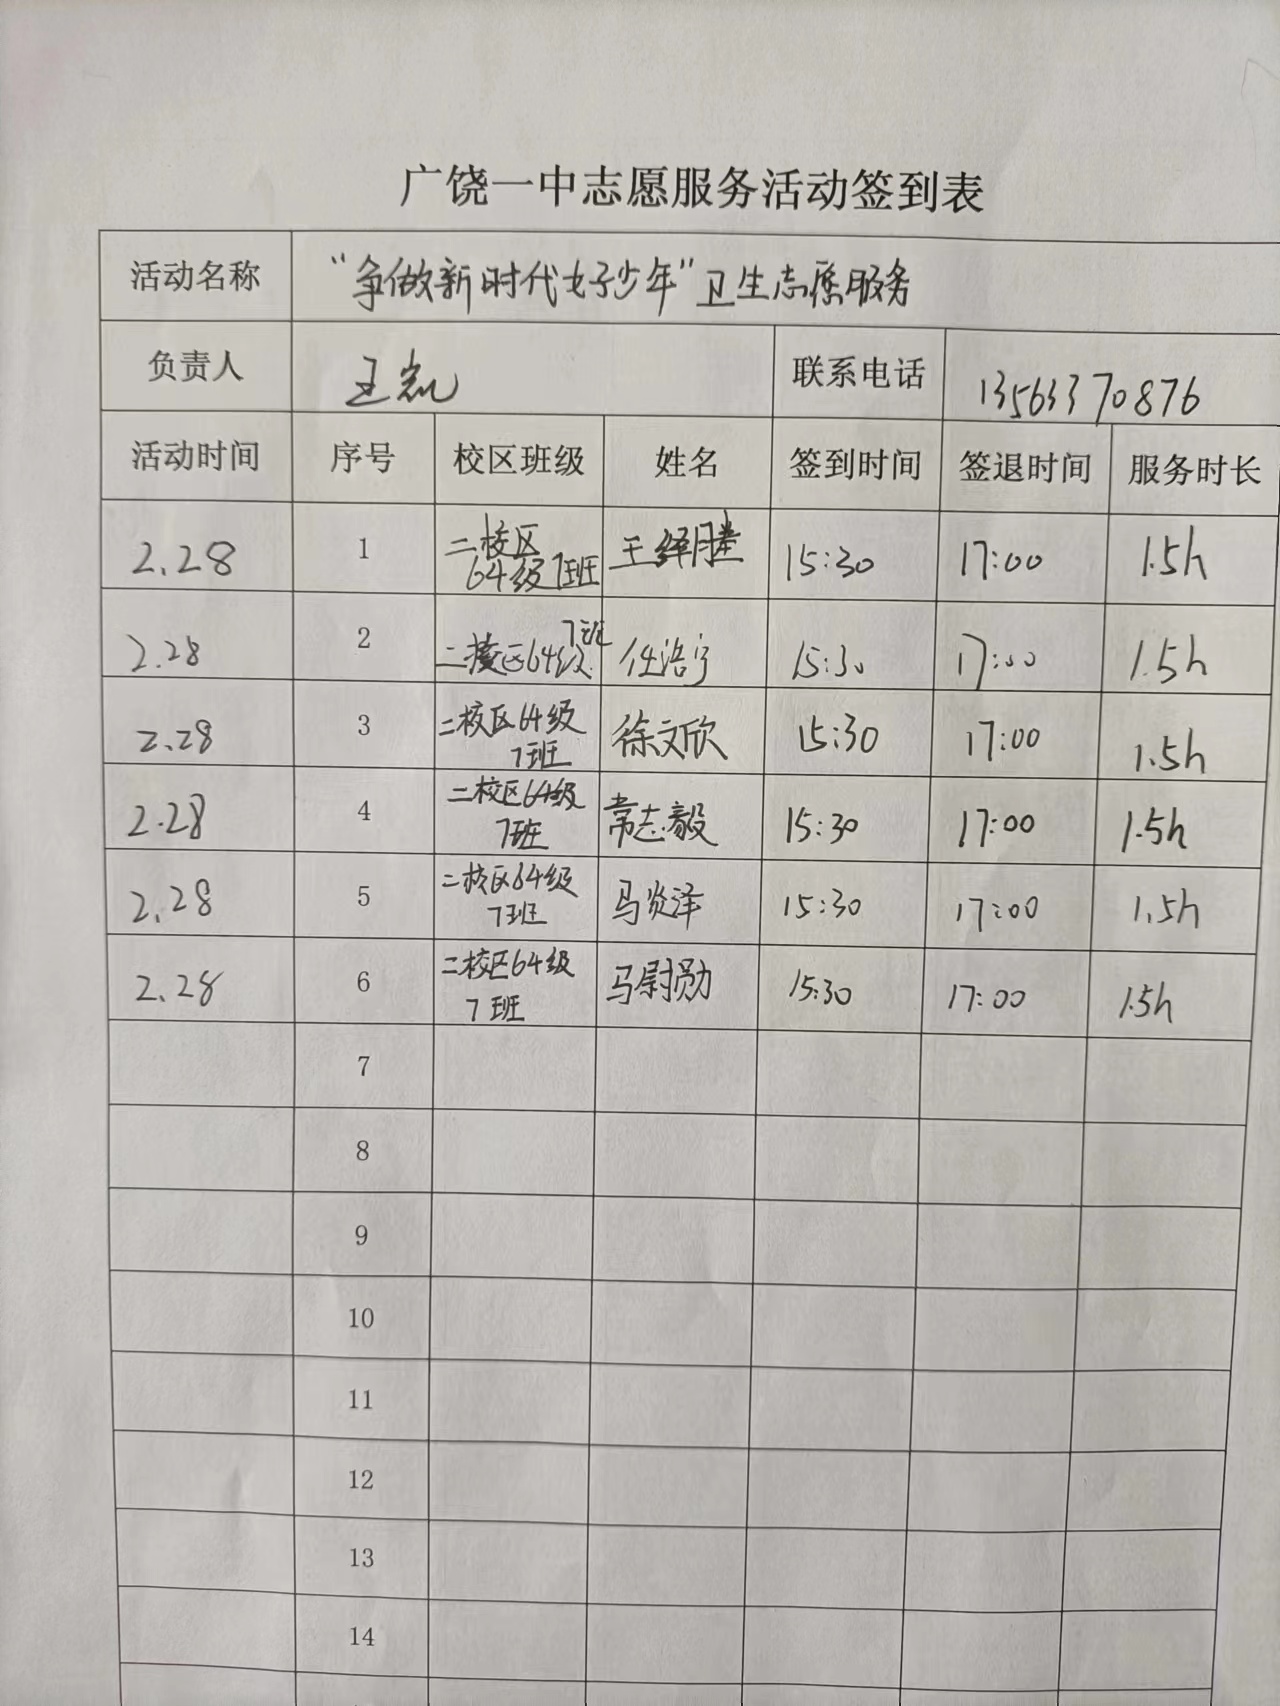 广饶一中志愿服务活动签到表
活动名称 “争做新时代好少年”卫生志愿服务
负责人 王凯 联系电话 13563370876
活动时间 序号 校区班级 姓名 签到时间 签退时间 服务时长
2.28 1 二校区64级7班 王绎腾 15:30 17:00 1.5h
2.28 2 二校区64级7班 任浩宇 15:30 17:00 1.5h
2.28 3 二校区64级7班 徐文欣 15:30 17:00 1.5h
2.28 4 二校区64级7班 常志毅 15:30 17:00 1.5h
2.28 5 二校区64级7班 马炎泽 15:30 17:00 1.5h
2.28 6 二校区64级7班 马尉勋 15:30 17:00 1.5h
7
8
9
10
11
12
13
14